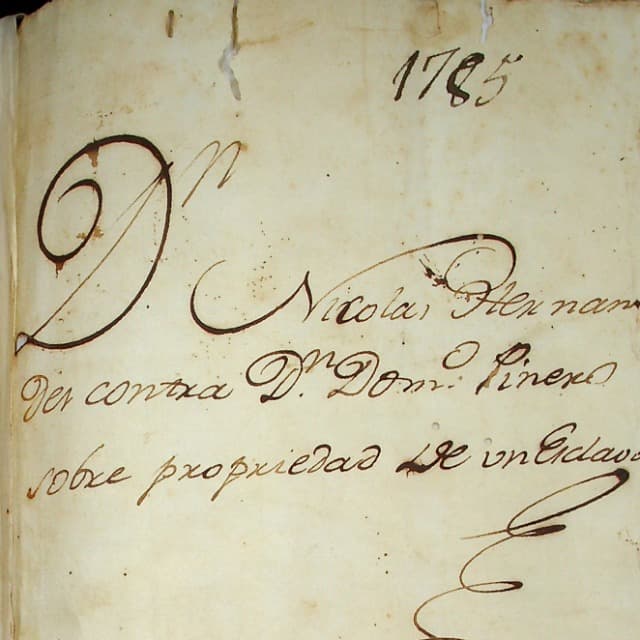 1785
Dn
Nicolas Hernan
des contra Dn. Domo. Pinero
sobre propriedad de un Esclavo